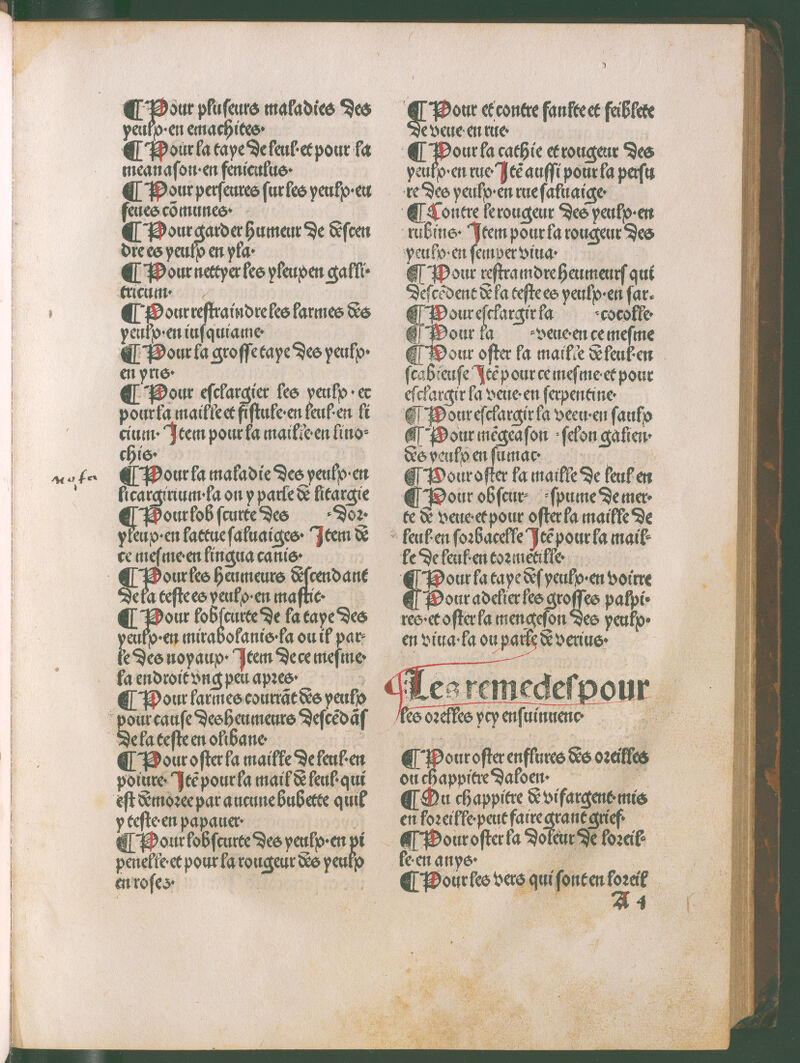 ¶ Pour pluſeurs maladies des
yeulx·en emachites·
¶ Pour la taye de leul·et pour la
meanaſon·en feniculus·
¶ Pour perſeures ſur les yeulx·en
feues cōmunes·
¶ Pour garder humeur de deſcen
dre es yeulx en yſa·
¶ Pour nettyer les yleux en galli-
tricum·
¶ Pour reſtraindre les larmes des
yeulx·en iuſquiame·
¶ Pour la groſſe taye des yeulx·
en yris·
¶ Pour eſclargier les yeulx·et
pour la maille et fiſtule·en leul·en li
cium· Item pour la maille·en lino-
chis·
nota
¶ Pour la maladie des yeulx·en
licargirium·la on y parle de litargie
¶ Pour lobſcurte des -dor-
yleux·en lattue ſaluaiges· Item de
ce meſme·en lingua canis·
¶ Pour les heumeurs deſcendant
de la teſte es yeulx·en maſtic·
¶ Pour lobſcurte de la taye des
yeulx·en mirabolanis·la ou il par-
le des noyaux· Item de ce meſme·
la endroit vng peu apres·
¶ Pour larmes courrāt des yeulx
pour cauſe des heumeurs deſcēdāſ
de la teſte en olibane·
¶ Pour oſter la maille de leul·en
poiure· Itē pour la mail de leul·qui
eſt demoree par aucune bubette quil
y teſte·en papauer·
¶ Pour lobſcurte des yeulx·en pi
penelle·et pour la rougeur des yeulx
en roſes·
¶ Pour et contre ſankte et feiblete
de veue·en rue·
¶ Pour la cathie et rougeur des
yeulx·en rue·Itē auſſi pour la perſu
re des yeulx·en rue ſaluaige·
¶ Contre le rougeur des yeulx·en
rubins· Item pour la rougeur des
yeulx·en ſemper viua·
¶ Pour reſtraindre heumeurſ qui
deſcēdent de la teſte es yeulx·en ſar-
¶ Pour eſclargir la -cocolle·
¶ Pour la -veue·en ce meſme
¶ Pour oſter la maille de leul·en
ſcabieuſe Itē pour ce meſme·et pour
eſclargir la veue·en ſerpentine·
¶ Pour eſclargir la veeu·en ſaulx
¶ Pour mēgeaſon -ſelon galien·
des yeulx en ſumac·
¶ Pour oſter la maille de leul en
¶ Pour obſcur- -ſpume de mer·
te de veue·et pour oſter la maille de
leul·en ſorbacelle Itē pour la mail-
le de leul·en tormētille·
¶ Pour la taye deſ yeulx·en voirre
¶ Pour adelier les groſſes palpi-
res·et oſter la mengeſon des yeulx·
en viua·la ou parle de verius·
¶ Les remedeſ pour
les orelles ycy enſuiuuent·
¶ Pour oſter enflures des oreilles
ou chappitre daloen·
¶ Ou chappitre de vifargent·mis
en loreille·peut faire grant grief·
¶ Pour oſter la doleur de loreil-
le·en anys·
¶ Pour les vers qui ſont en loreil
A 4